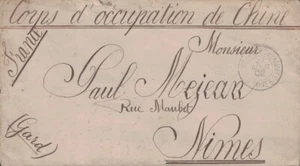 Corps d'occupation de Chine
Monsieur
France
Paul Mejean
Rue Maubet
(Gard)
Nimes